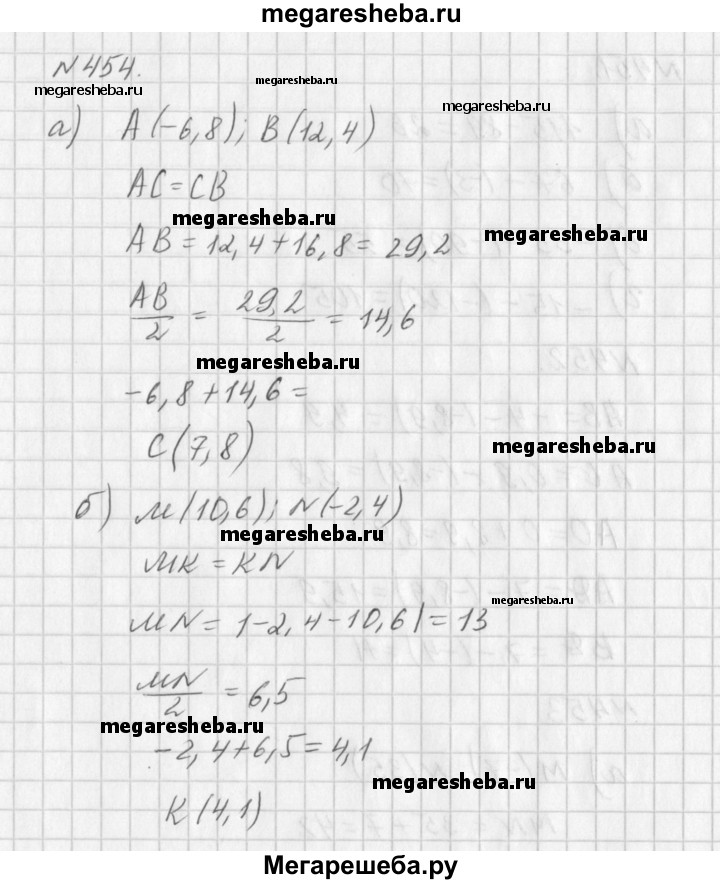 megaresheba.ru
№454.
megaresheba.ru
megaresheba.ru
megaresheba.ru
а) A(-6,8); B(12,4)
AC=CB
megaresheba.ru
megaresheba.ru
AB=12,4+16,8=29,2
AB/2 = 29,2/2 = 14,6
megaresheba.ru
-6,8+14,6=
C(7,8)
megaresheba.ru
б) M(10,6); N(-2,4)
megaresheba.ru
MK=KN
megaresheba.ru
MN=|-2,4-10,6|=13
MN/2 = 6,5
megaresheba.ru
-2,4+6,5=4,1
megaresheba.ru
K(4,1)
Мегарешеба.ру